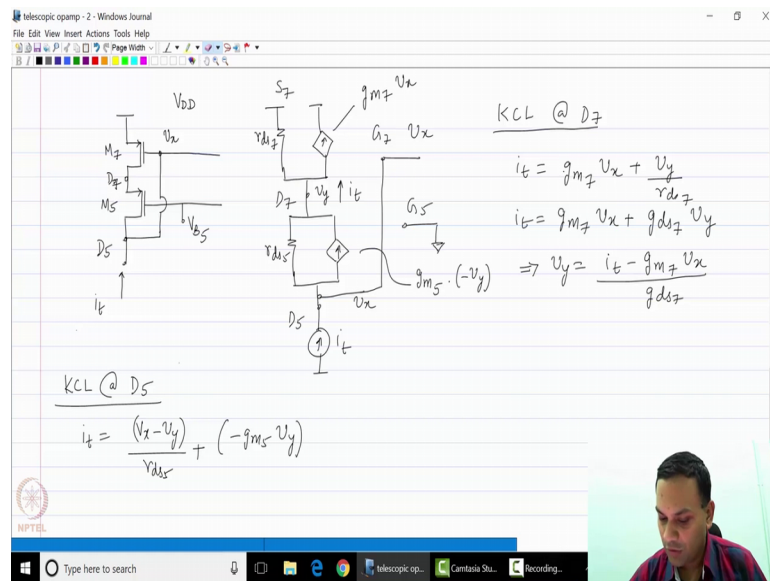 telescopic opamp - 2 - Windows Journal
File Edit View Insert Actions Tools Help
Page Width
B I
V_DD
M_7
V_x
D_7
M_5
V_B5
D_5
i_t
S_7
g_m7 V_x
r_ds7
G_7 V_x
D_7 V_y i_t
G_5
r_ds5
g_m5 · (-V_y)
V_x
D_5
i_t
KCL @ D_7
i_t = g_m7 V_x + V_y / r_ds7
i_t = g_m7 V_x + g_ds7 V_y
⇒ V_y = (i_t - g_m7 V_x) / g_ds7
KCL @ D_5
i_t = (V_x - V_y) / r_ds5 + (-g_m5 V_y)
NPTEL
Type here to search
telescopic op...
Camtasia Stu...
Recording...